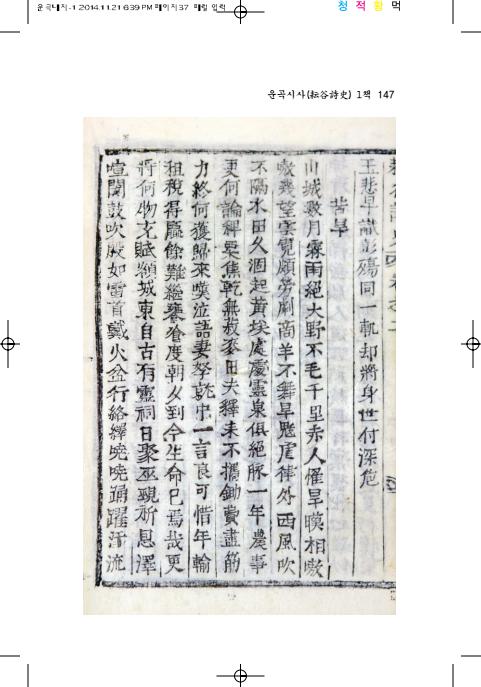 운곡내지-1 2014.11.21 6:39 PM 페이지37 매일 입력
청 적 황 먹
운곡시사(耘谷詩史) 1책 147
王悲早識彭殤同一軌却將身世付深危
苦旱
山城數月霖雨絕大野不毛千里赤人罹旱暵相嗷
嗷幾望雲霓頗劳劇商羊不舞旱魃虐律外西風吹
不隔水田久涸起黄埃處處靈泉俱絕脉一年農事
更何論稗粟焦乾無菽麥田夫釋耒不攜鋤費盡筋
力終何獲歸來嘆泣語妻孥說出一言良可惜年輸
租稅得贏餘難繼饔飱度朝夕到今生命已焉哉更
將何物充賦額城東自古有靈祠日聚巫覡祈恩澤
喧闐鼓吹殷如雷首戴火盆行絡繹曉曉踊躍汗流